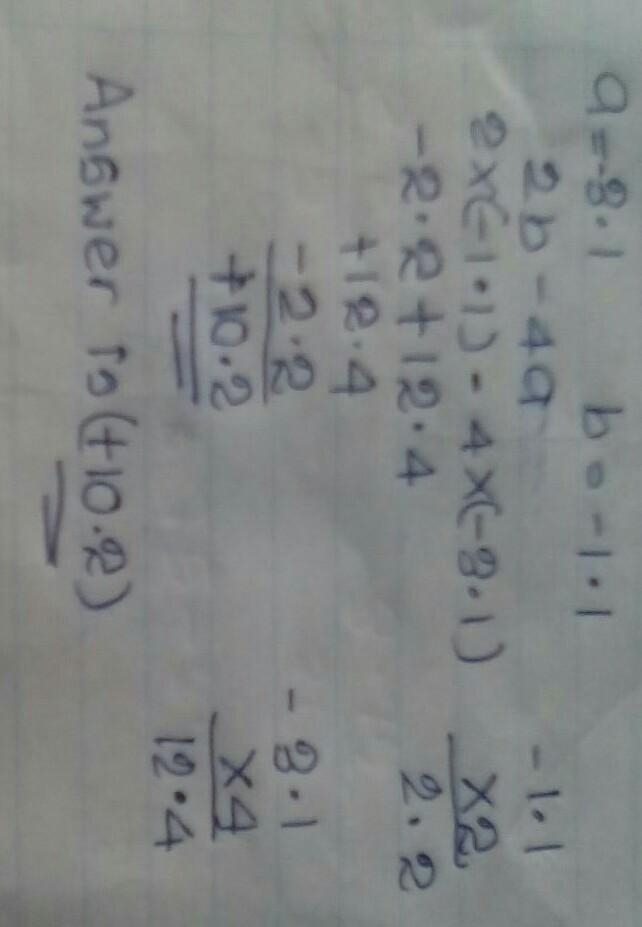 a=-3.1 b=-1.1
2b-4a
2×(-1.1)-4×(-3.1)
-2.2+12.4
+12.4
-2.2
+10.2
-1.1
×2
2.2
-3.1
×4
12.4
Answer Is (+10.2)